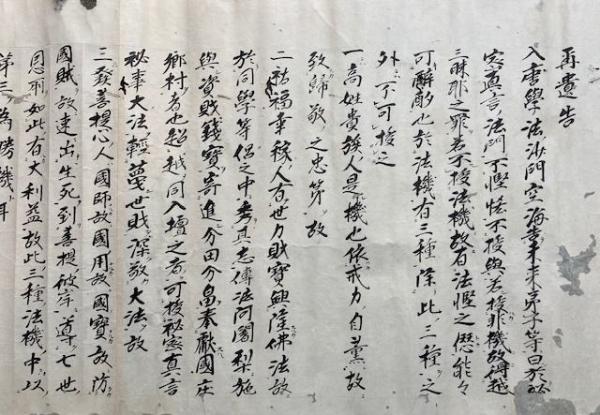 再遺告
入唐學法沙門空海告未来弟子等曰於秘
密真言法門不慳恡不授與若授非機故得越
三昧耶之罪若不授法機故有法慳之愆能々
可斟酌也於法機有三種除此三種之
外不可授之
一高姓貴族人是機也依戒力自薫故
致歸敬之忠第故
二福幸稼人有世力財寶興隆佛法故
於同學等侶之中秀其志傳法阿闍梨施
與資財錢寶寄進分田分畠奉献國庄
郷村者也超越同入壇之者可授秘密真言
秘事大法輕蔑世財深敬大法故
三發菩提心人國師故國用故國寶故防
國賊故速出生死到菩提彼岸導七世
恩所如此有大利益故此三種法機中以
第三為勝機耳